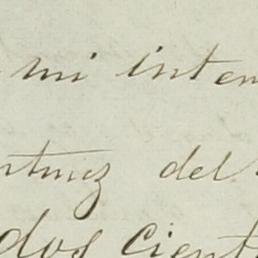 mi inten
rtinez del
dos cient